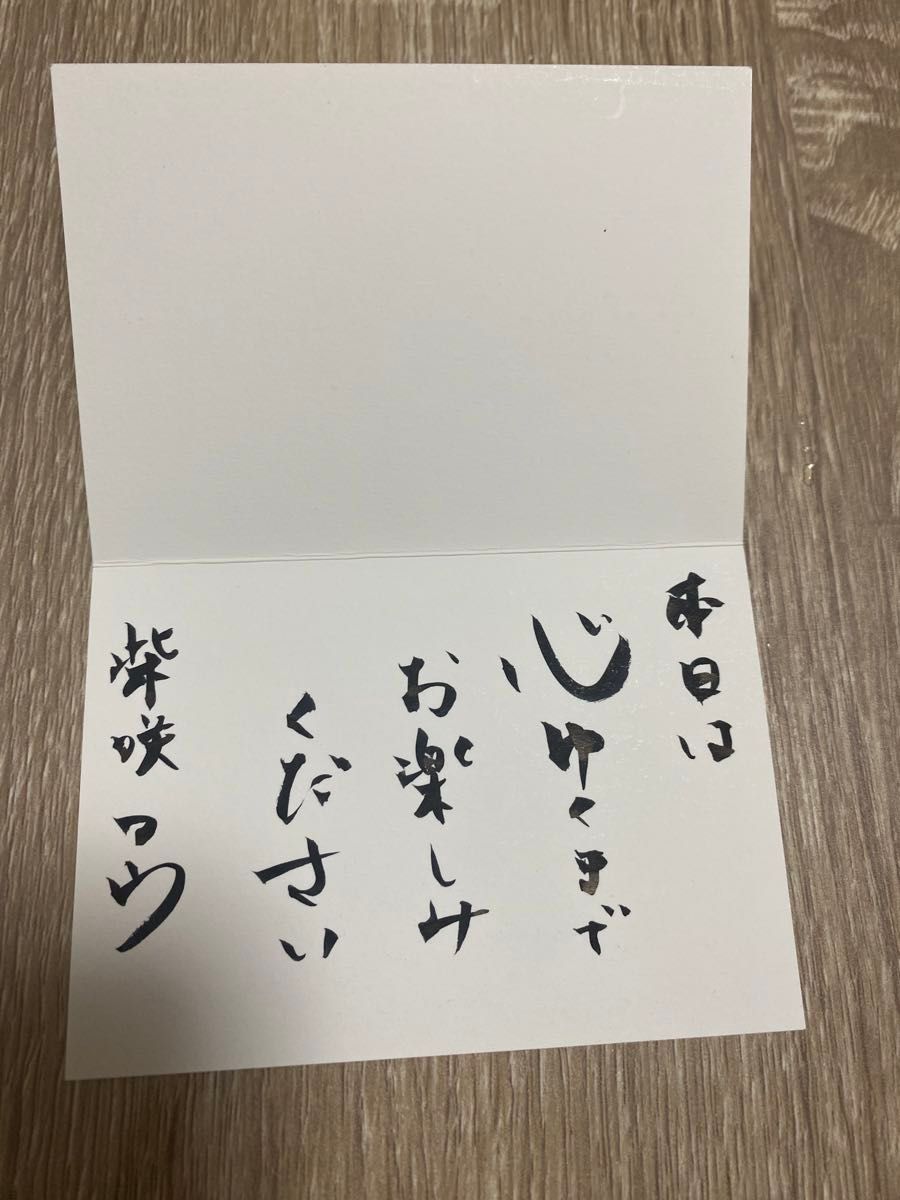 本日は
心ゆくまで
お楽しみ
ください
柴咲コウ